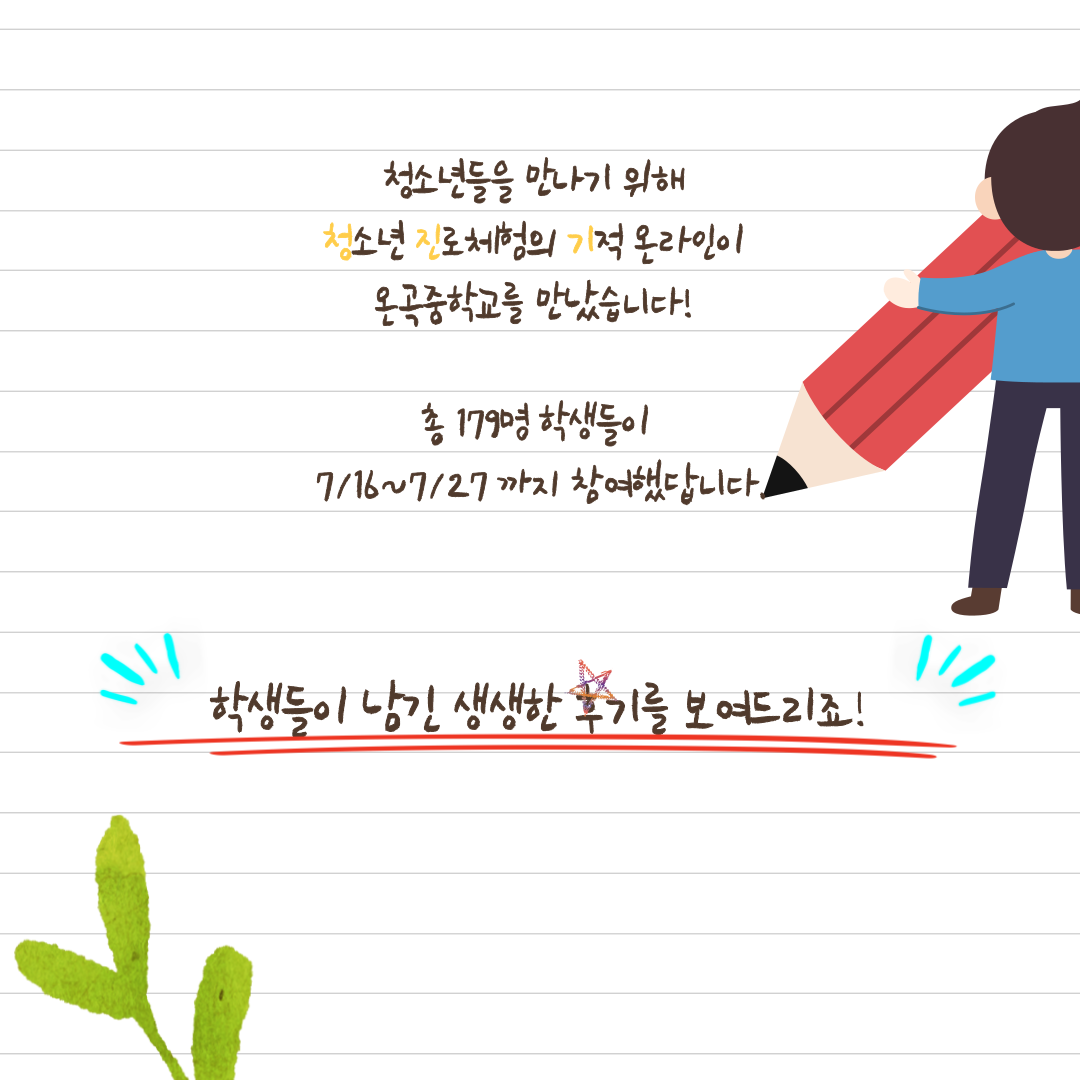 청소년들을 만나기 위해
청소년 진로체험의 기적 온라인이
온곡중학교를 만났습니다!
총 179명 학생들이
7/16~7/27 까지 참여했답니다.
학생들이 남긴 생생한 후기를 보여드리죠!